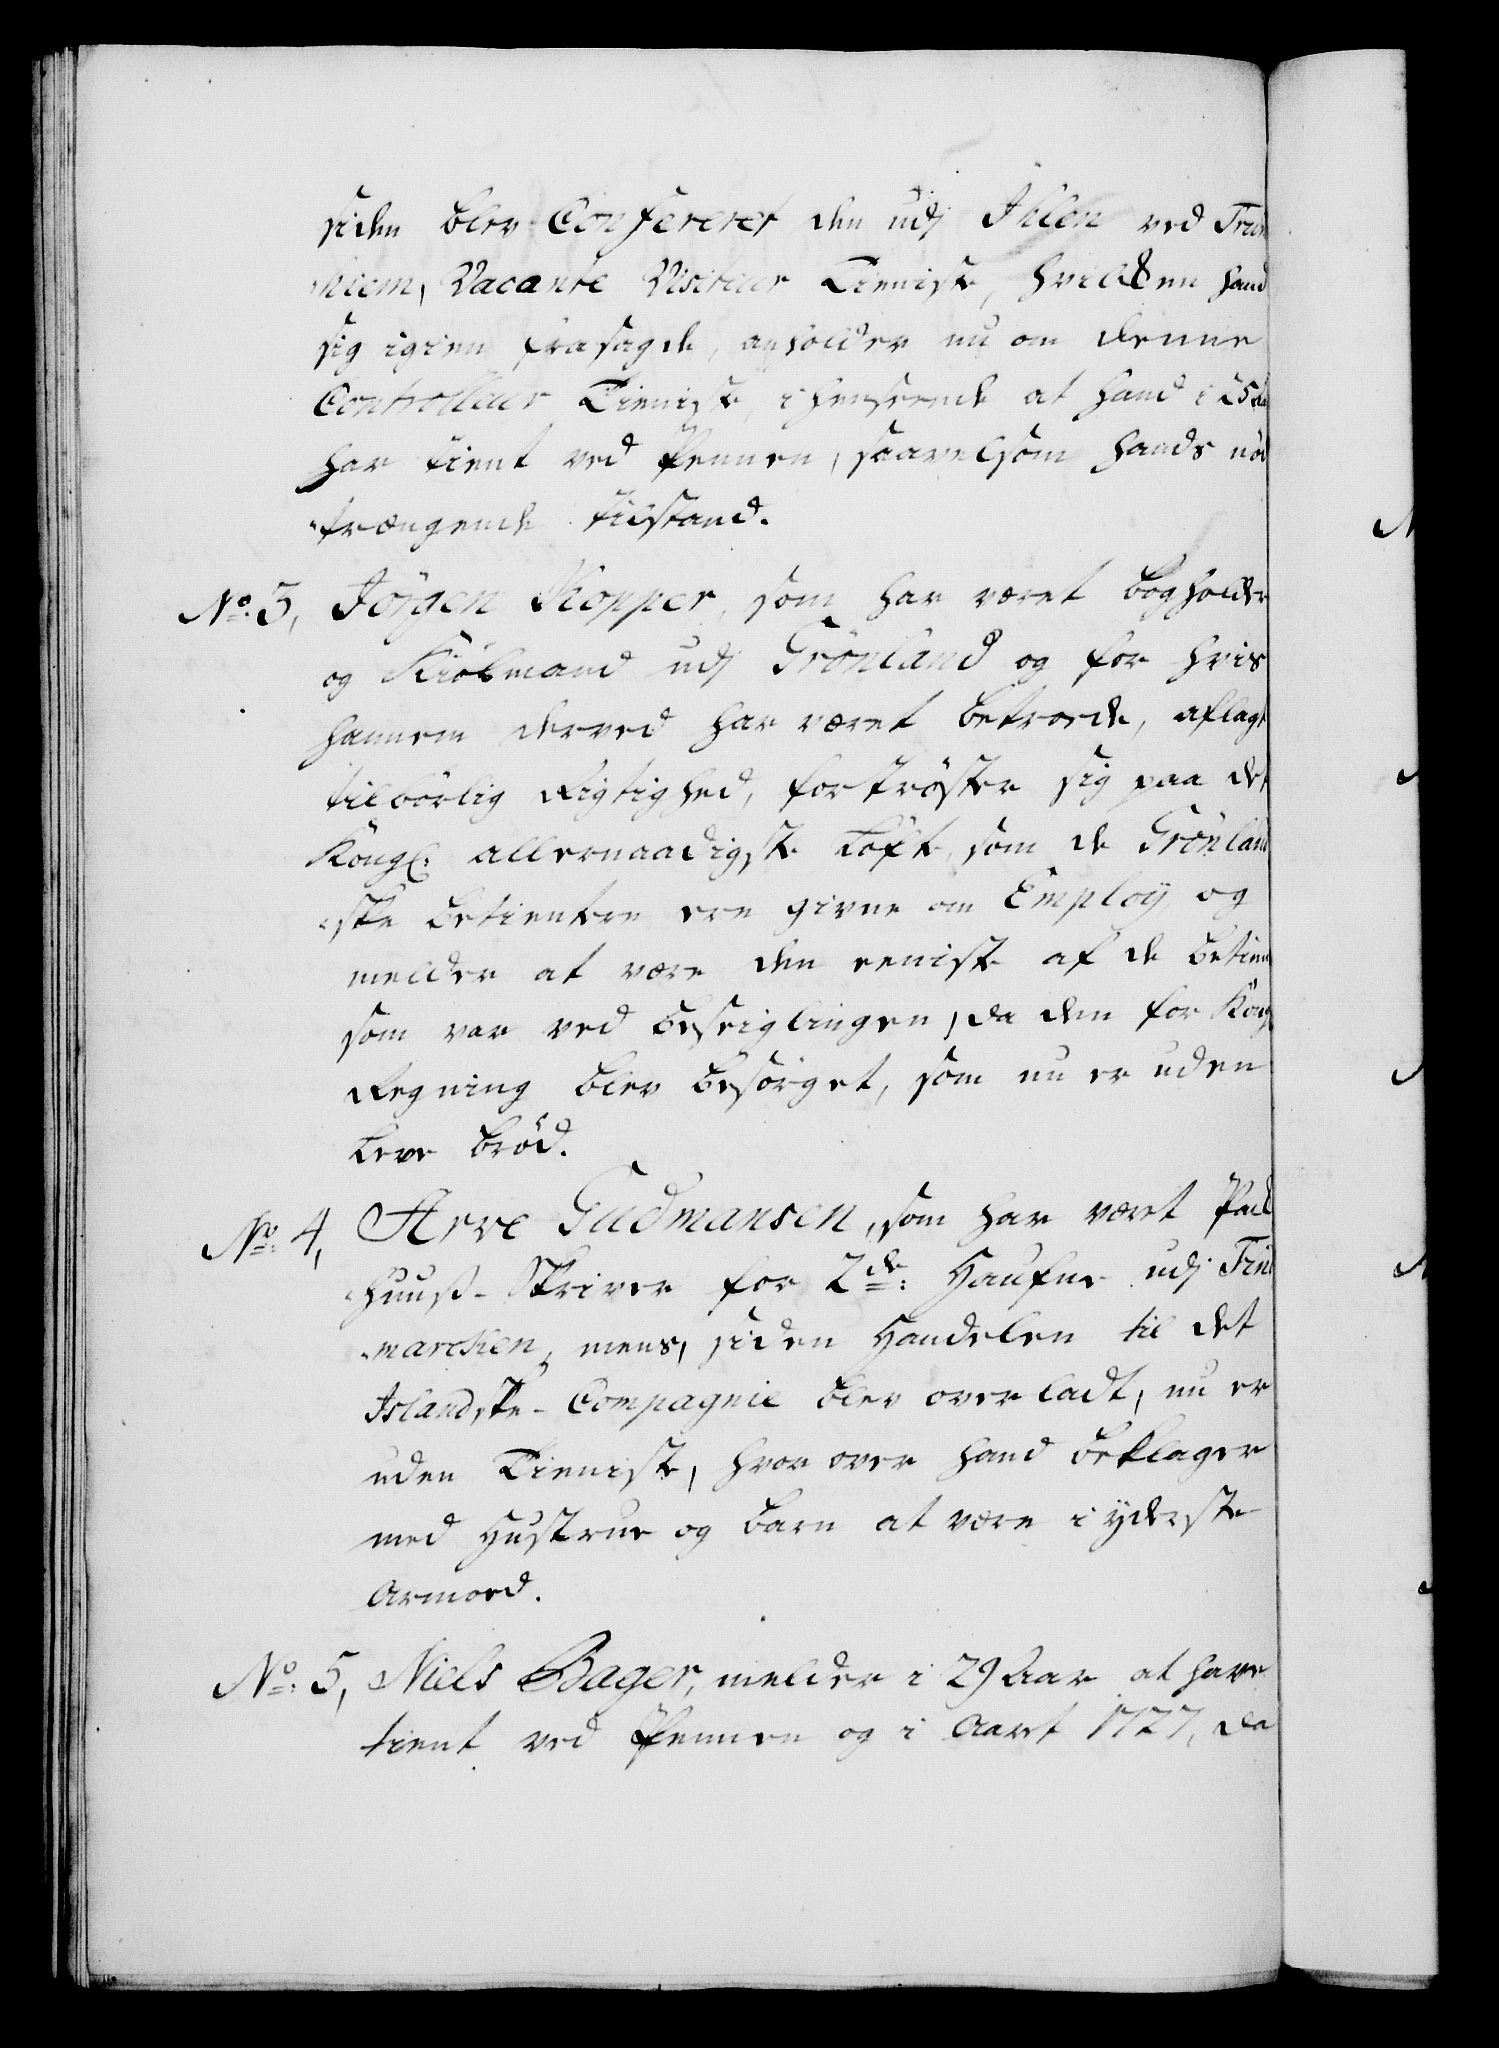 siden blev Confereret den udj Ihlen ved Trun
hiem, Vacante Visiteur Tieniste, hvilken hand
sig igien frasagde, anholder nu om denne
Controlleur Tieniste, i henseende at hand i 25 aar
har tient ved Pennen, saavelsom hands nöd
trængende tilstand.
No: 3, Jörgen Kopper, som har været bogholder
og Kiöbmand udj Grönland og for hvis
hannem derved har været betroede, aflagt
tilbörlig Rigtighed, fortröster sig paa det
Kongl: allernaadigste Löfte, som de Grönland
ske betientere ere givne om Employ og
melder at være den eeniste af de betien
som var ved beseiglingen, da den for Kong
Regning blev besörget, som nu er uden
Leve bröd.
No: 4, Arve Gudmansen, som har været Pak
huus-Skriver for 2de: Haufne udj Fin
marcken, mens, siden Handelen til det
Islandske-Compagnie blev overladt, nu er
uden Tieniste, hvor over hand beklager
med Hustrue og barn at være i yderste
Armoed.
No: 5, Niels Bager, melder i 29 Aar at have
tient ved Pennen og i Aaret 1727, da